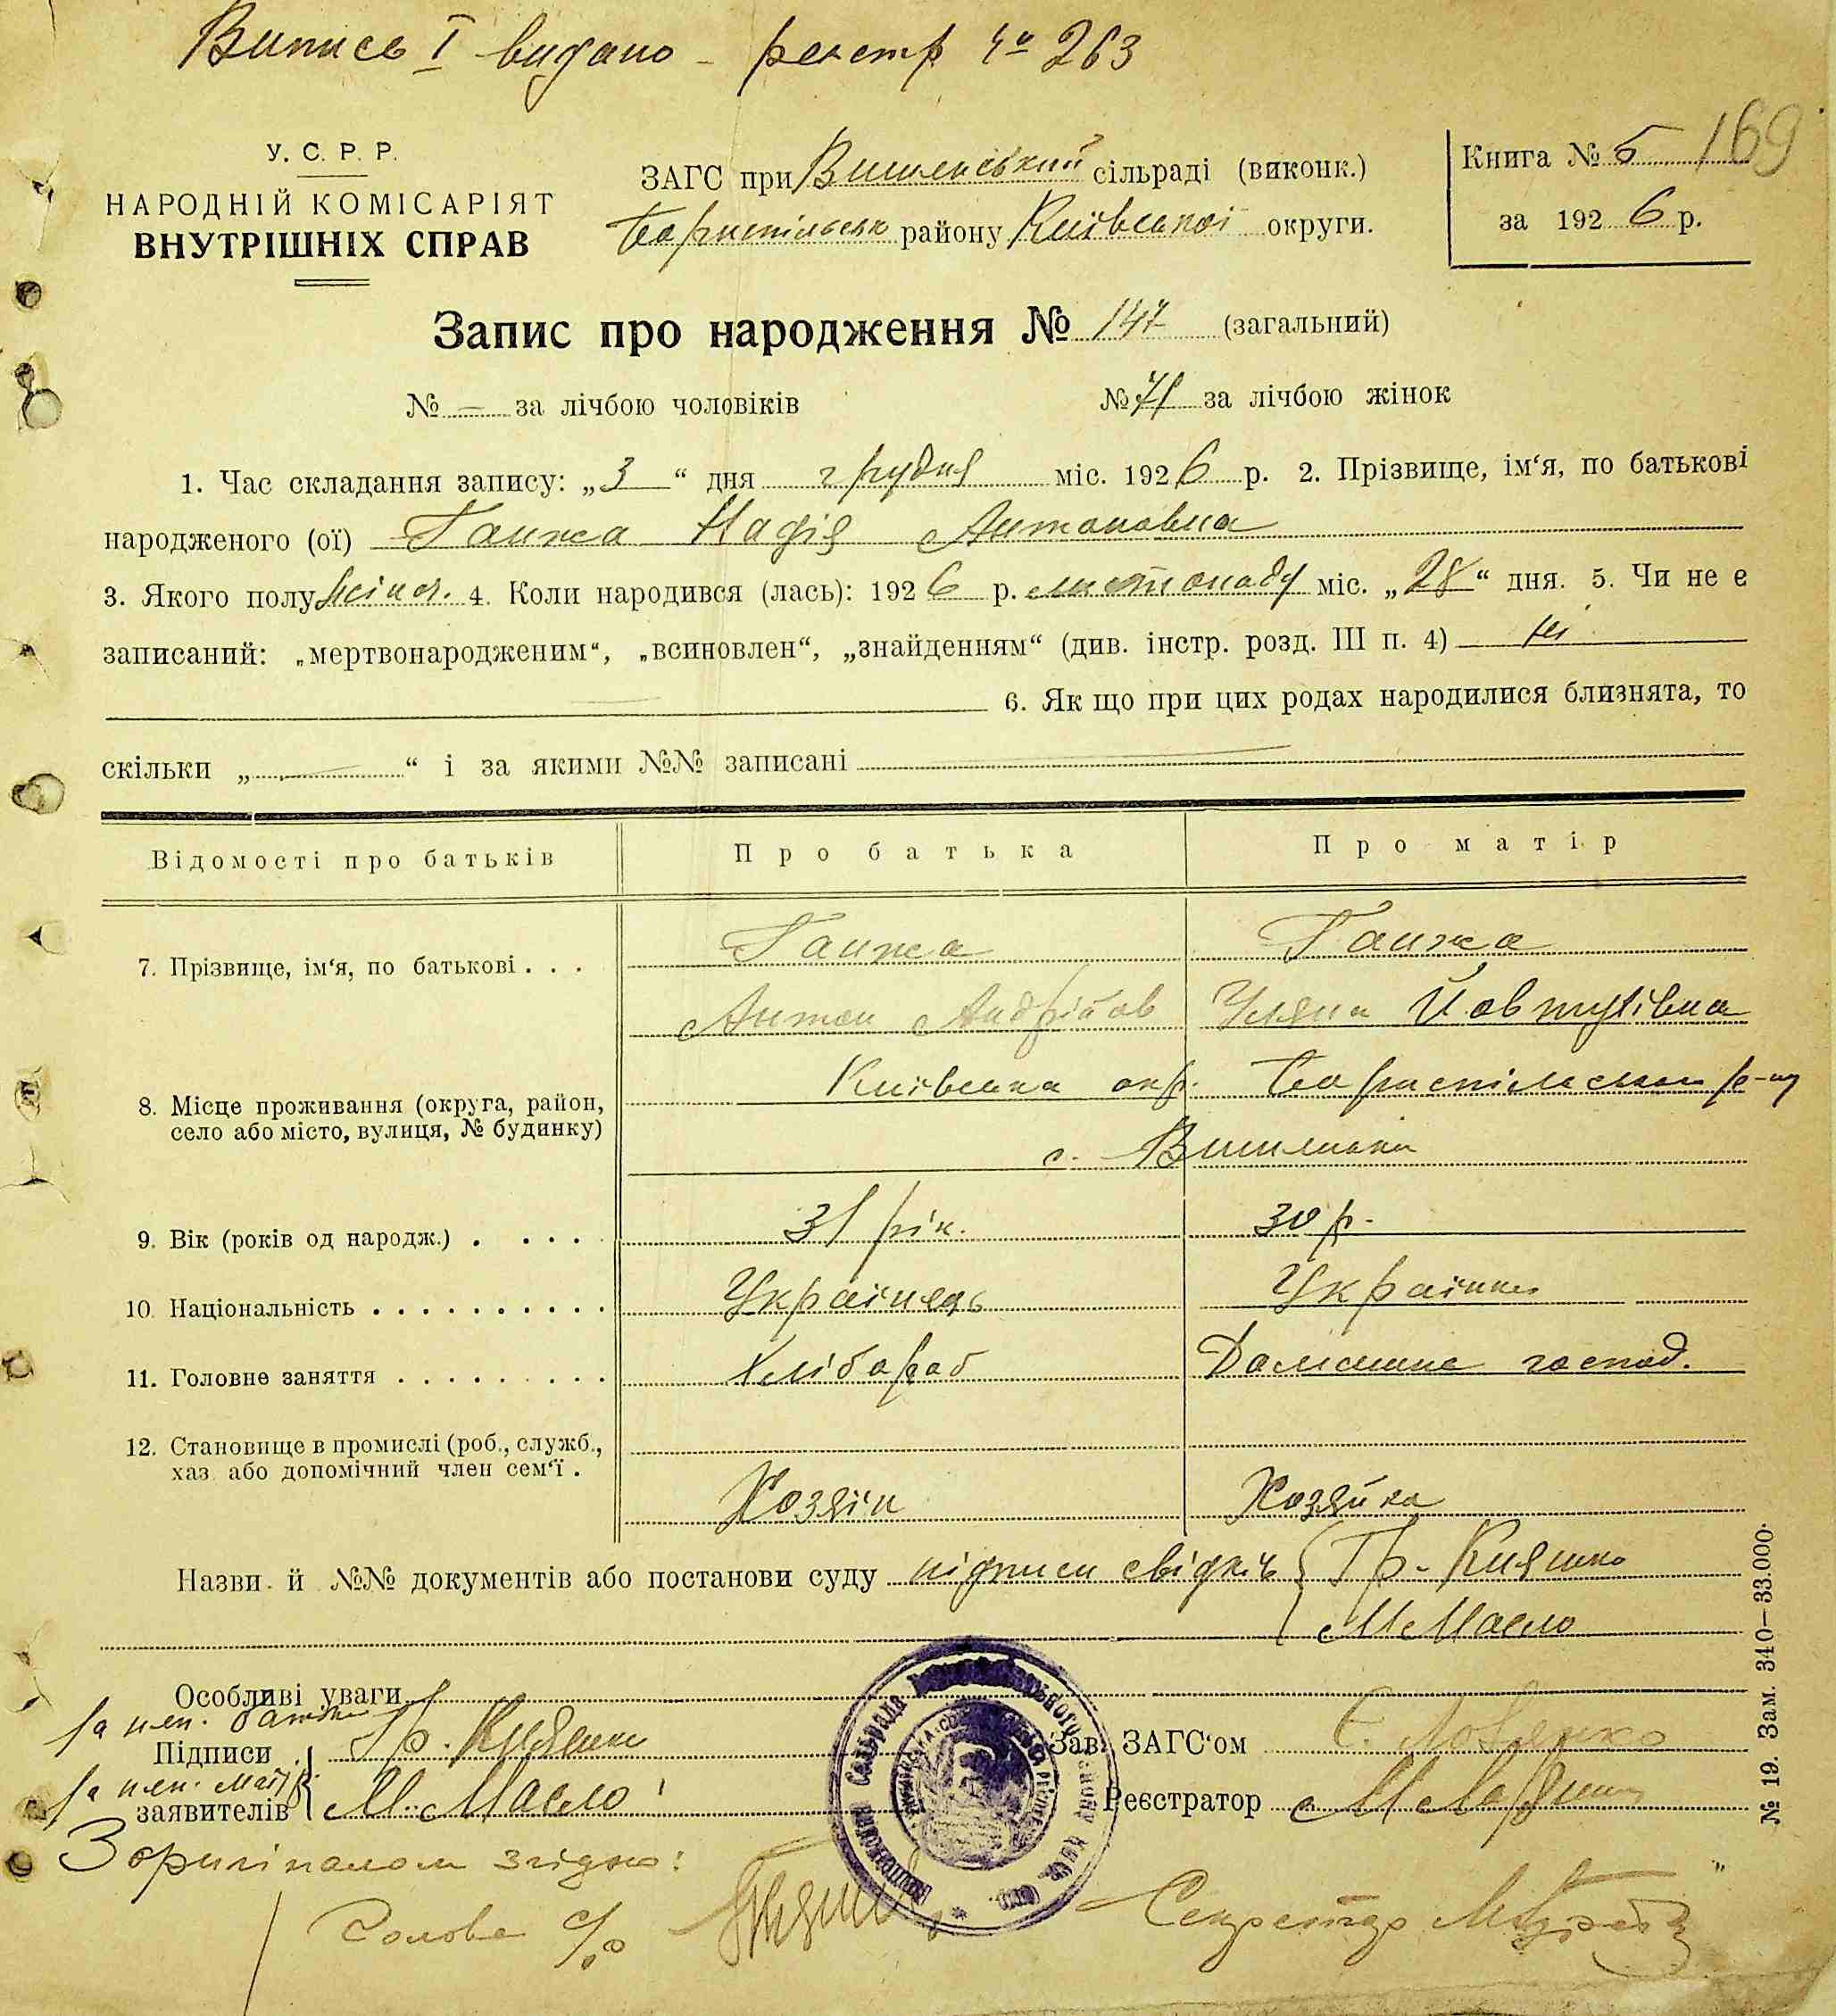 Випись I видано - реєстр № 263
169
У. С. Р. Р.
НАРОДНІЙ КОМІСАРІЯТ
ВНУТРІШНІХ СПРАВ
ЗАГС при Вишенський сільраді (виконк.)
Бориспільськ району Київської округи.
Книга № 5
за 1926 р.
Запис про народження № 147 (загальний)
№ — за лічбою чоловіків
№ 71 за лічбою жінок
1. Час складання запису: „3“ дня грудня міс. 1926 р. 2. Прізвище, ім‘я, по батькові
народженого (ої) Ганжа Надія Антоновна
3. Якого полу жіноч. 4. Коли народився (лась): 1926 р. листопаду міс. „28“ дня. 5. Чи не є
записаний: „мертвонародженим“, „всиновлен“, „знайденням“ (див. інстр. розд. III п. 4) ні
6. Як що при цих родах народилися близнята, то
скільки „ — “ і за якими №№ записані
Відомості про батьків Про батька Про матір
7. Прізвище, ім‘я, по батькові . . . Ганжа Ганжа
Антон Андрійов Уляна Йовтухівна
8. Місце проживання (округа, район, Київська окр. Бориспільськ р-ну
село або місто, вулиця, № будинку)
с. Вишеньки
9. Вік (років од народж.) . . . . 31 рік. 30 р.
10. Національність . . . . . . . . . . Українець Українка
11. Головне заняття . . . . . . . . . Хлібороб Домашнє господ.
12. Становище в промислі (роб., служб.,
хаз. або допомічний член сем‘ї .
Хозяїн Хозяйка
Назви й №№ документів або постанови суду підписи свідків { Гр. Кияшко
М Масло
Особливі уваги
за неп. батька
Підписи Гр. Кияшко Зав. ЗАГС‘ом
за неп. матір
заявителів М. Масло Реєстратор
З оригіналом згідно:
Голова с/р
Секретар
№ 19. Зам. 340—33.000.